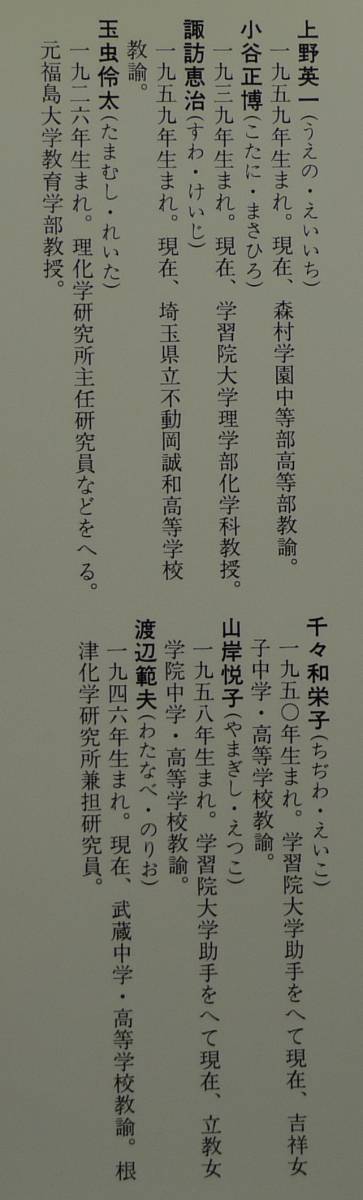 上野英一(うえの・えいいち)
一九五九年生まれ。現在、森村学園中等部高等部教諭。
小谷正博(こたに・まさひろ)
一九三九年生まれ。現在、学習院大学理学部化学科教授。
諏訪恵治(すわ・けいじ)
一九五九年生まれ。現在、埼玉県立不動岡誠和高等学校
教諭。
玉虫伶太(たまむし・れいた)
一九二六年生まれ。理化学研究所主任研究員などをへる。
元福島大学教育学部教授。
千々和栄子(ちぢわ・えいこ)
一九五〇年生まれ。学習院大学助手をへて現在、吉祥女
子中学・高等学校教諭。
山岸悦子(やまぎし・えつこ)
一九五八年生まれ。学習院大学助手をへて現在、立教女
学院中学・高等学校教諭。
渡辺範夫(わたなべ・のりお)
一九四六年生まれ。現在、武蔵中学・高等学校教諭。根
津化学研究所兼担研究員。